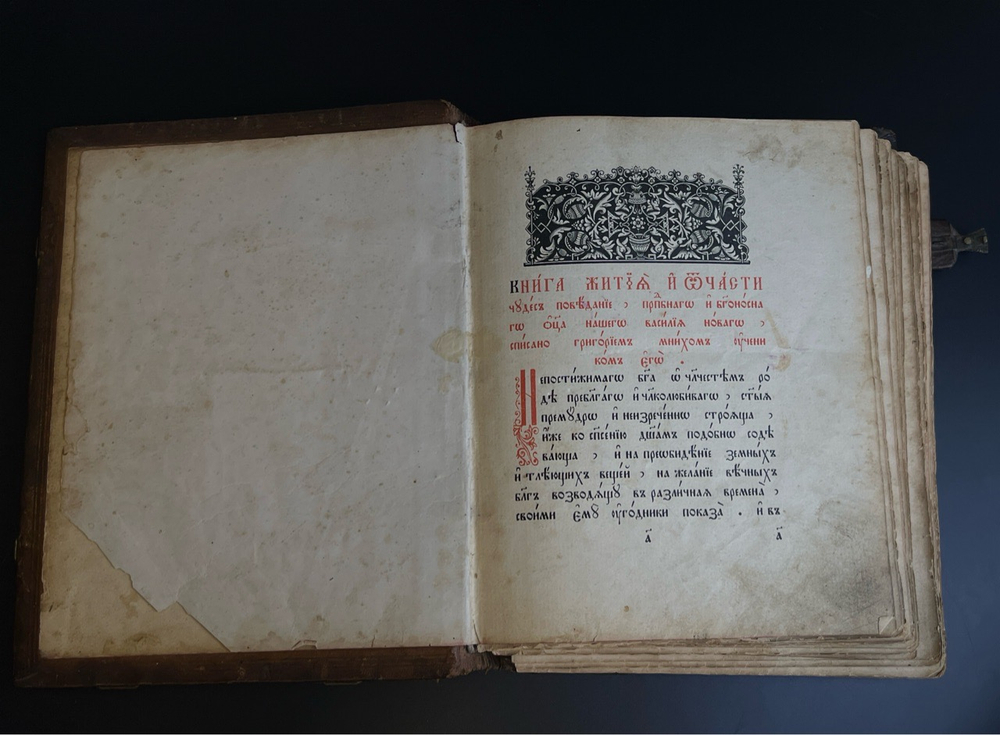 Кни́га житїѧ̀ и҆ ѿча́сти
чꙋде́съ повѣ́данїе , прпⷣбнагѡ и҆ бг҃оно́сна
гѡ ѻ҆ц҃а̀ на́шегѡ васи́лїѧ но́вагѡ ,
спи́сано григо́рїемъ мни́хомъ ᲂу҆чени
ко́мъ є҆гѡ̀ .
Непости́жимагѡ бг҃а ѡ҆ чл҃честѣ́мъ ро́
дѣ пребл҃га́гѡ и҆ чл҃колюби́вагѡ , ст҃ы́ѧ
премꙋ́дрѡ и҆ неизрече́ннѡ стро́ѧща ,
и҆̀же ко сп҃се́нїю дш҃а́мъ подо́бнѡ содѣ́
ва́юща , и҆ на преѡбидѣ́нїе земны́хъ
и҆ тлѣ́ющихъ веще́й , на жела́нїе вѣ́чныхъ
бл҃гъ возводѧ́щꙋ въ разли́чнаѧ времена̀ ,
свои́ми є҆мꙋ̀ ᲂу҆го́дники показа̀ . и҆ въ
а҃ а҃